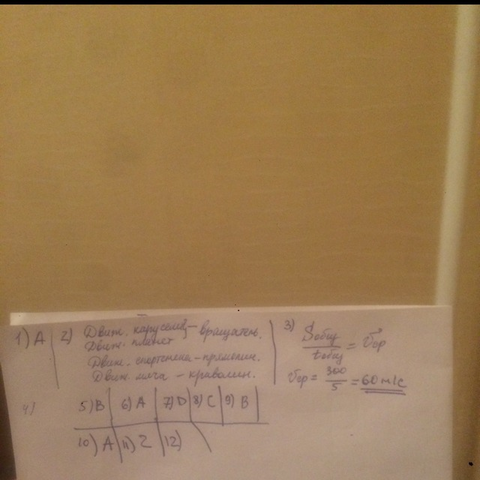 1) A
2) Движ. карусели - вращательн.
Движ. планет
Движ. спортсмена - прямолин.
Движ. мяча - криволин.
3) Sобщ / tобщ = Vср
Vср = 300 / 5 = 60 м/с
4)
5) B 6) A 7) D 8) C 9) B
10) A 11) 2 12) \